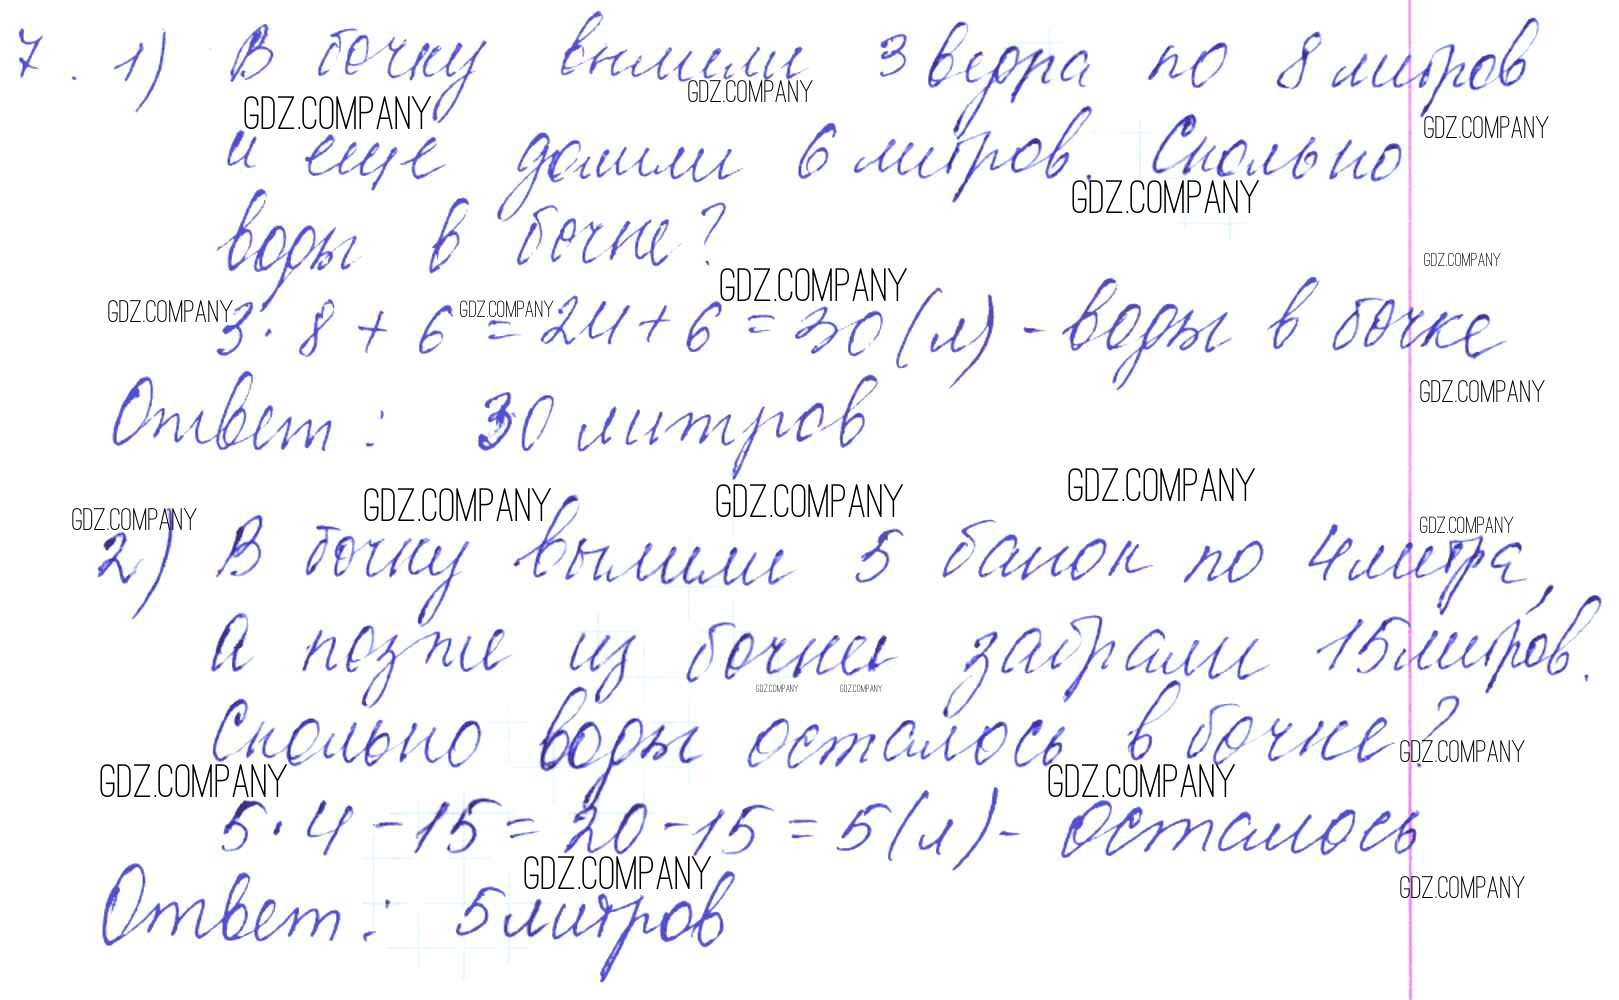 7. 1) В бочку вылили 3 ведра по 8 литров
GDZ.COMPANY GDZ.COMPANY GDZ.COMPANY
и еще долили 6 литров. Сколько
GDZ.COMPANY
воды в бочке?
GDZ.COMPANY GDZ.COMPANY
GDZ.COMPANY GDZ.COMPANY
3·8+6=24+6=30(л)-воды в бочке
GDZ.COMPANY
Ответ: 30 литров
GDZ.COMPANY GDZ.COMPANY GDZ.COMPANY
GDZ.COMPANY GDZ.COMPANY
2) В бочку вылили 5 банок по 4 литра,
а позже из бочки забрали 15 литров.
GDZ.COMPANY GDZ.COMPANY
Сколько воды осталось в бочке?
GDZ.COMPANY
GDZ.COMPANY GDZ.COMPANY
5·4-15=20-15=5(л)- осталось
GDZ.COMPANY GDZ.COMPANY
Ответ: 5 литров